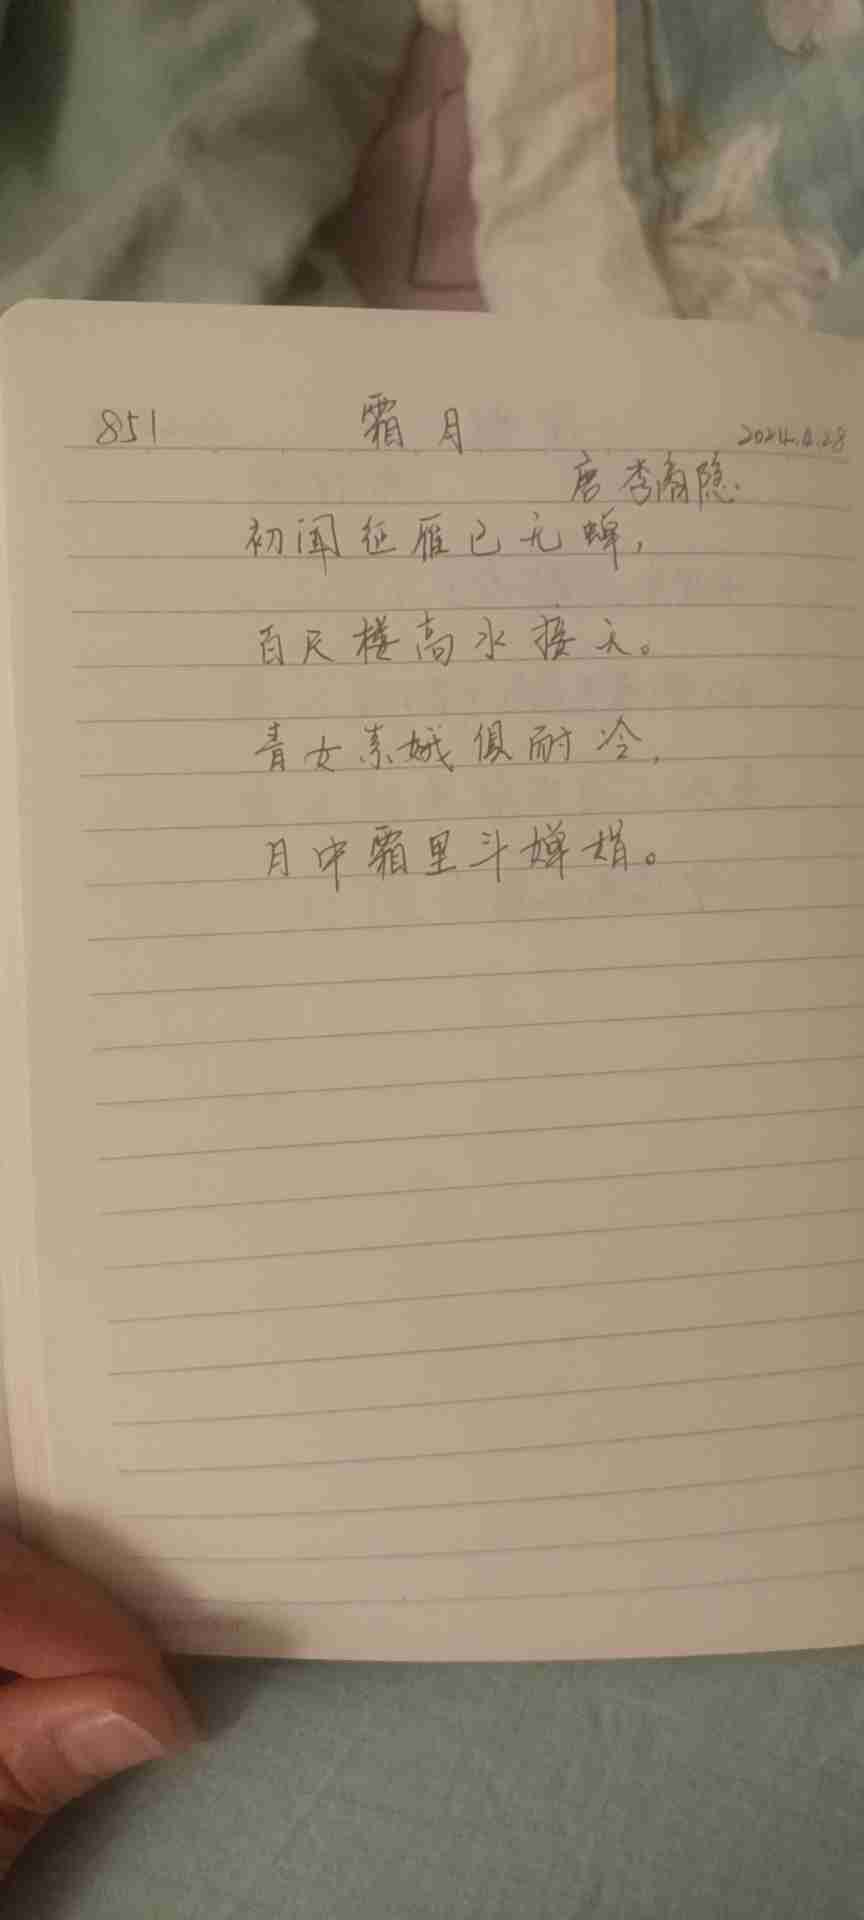 851 霜月 2024.4.28
唐 李商隐
初闻征雁已无蝉,
百尺楼高水接天。
青女素娥俱耐冷,
月中霜里斗婵娟。